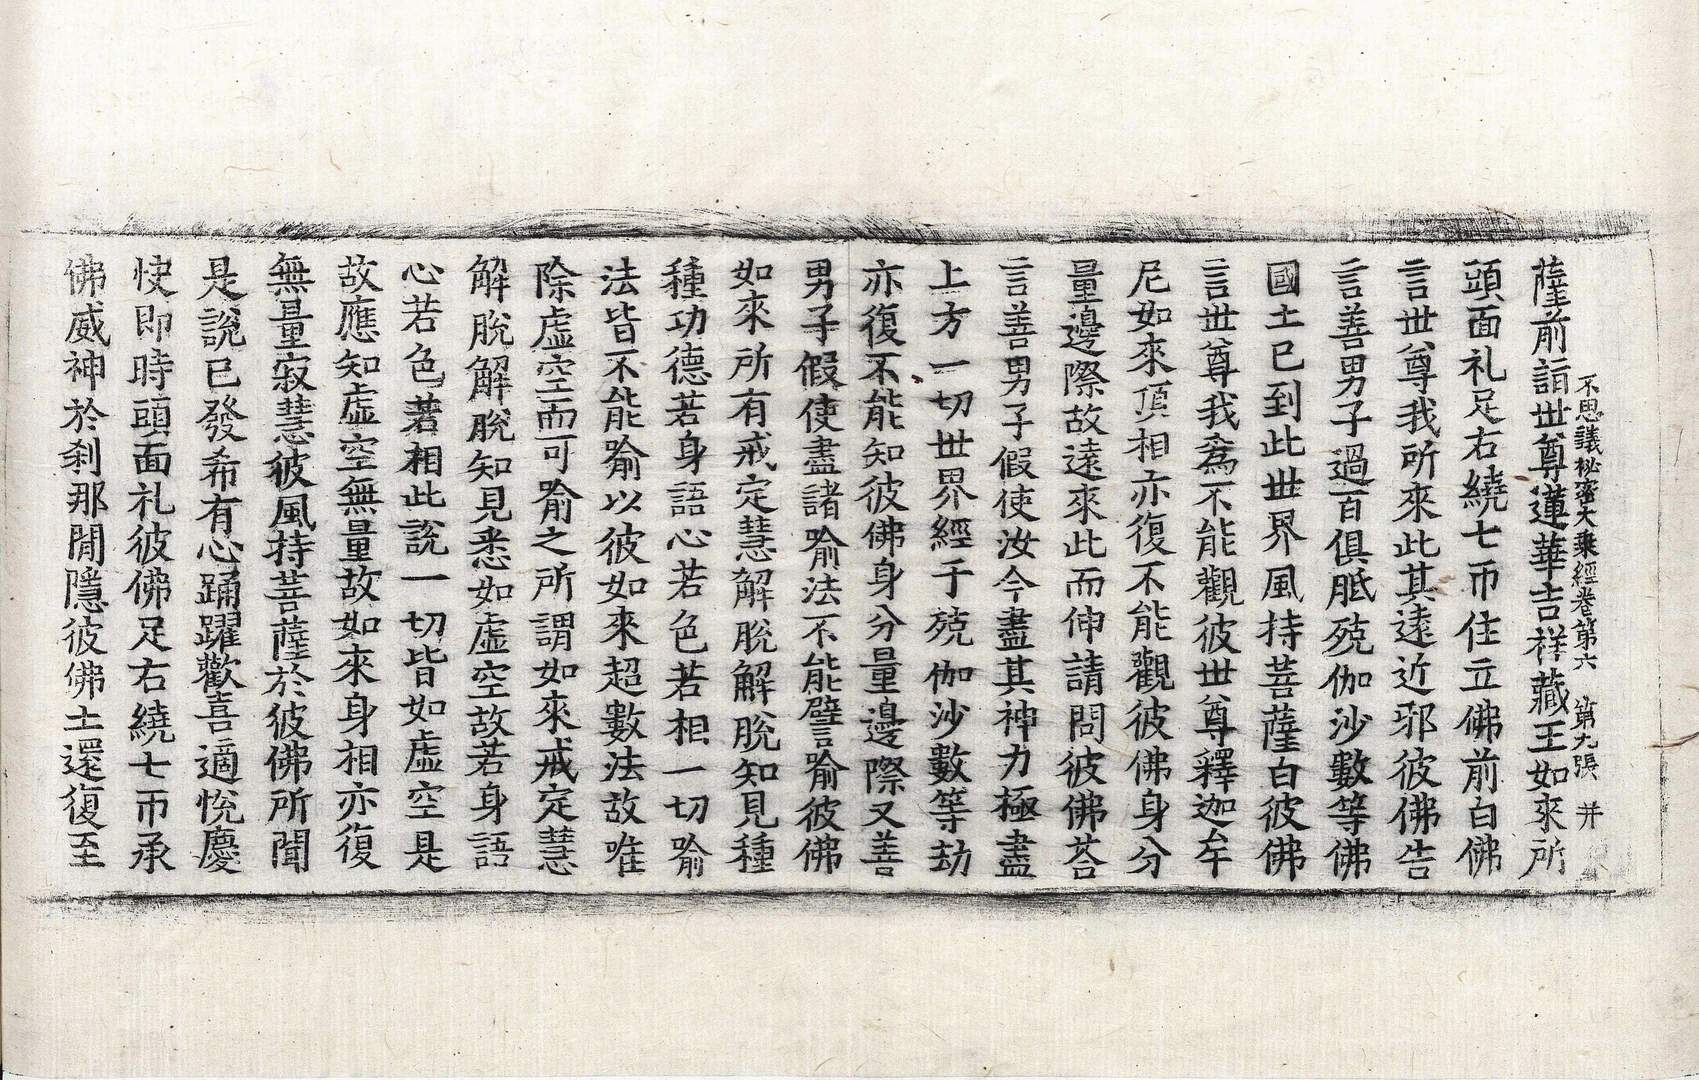 不思議祕密大乘經卷第六　第九張　并
薩前詣世尊蓮華吉祥藏王如來所
頭面礼足右繞七帀住立佛前白佛
言世尊我所來此其遠近邪彼佛告
言善男子過百俱胝殑伽沙數等佛
國土已到此世界風持菩薩白彼佛
言世尊我爲不能觀彼世尊釋迦牟
尼如來頂相亦復不能觀彼佛身分
量邊際故遠來此而伸請問彼佛荅
言善男子假使汝今盡其神力極盡
上方一切世界經于殑伽沙數等劫
亦復不能知彼佛身分量邊際又善
男子假使盡諸喻法不能譬喻彼佛
如來所有戒定慧解脫解脫知見種
種功德若身語心若色若相一切喻
法皆不能喻以彼如來超數法故唯
除虛空而可喻之所謂如來戒定慧
解脫解脫知見悉如虛空故若身語
心若色若相此說一切皆如虛空是
故應知虛空無量故如來身相亦復
無量寂慧彼風持菩薩於彼佛所聞
是說已發希有心踊躍歡喜適悅慶
快即時頭面礼彼佛足右繞七帀承
佛威神於刹那間隱彼佛土還復至